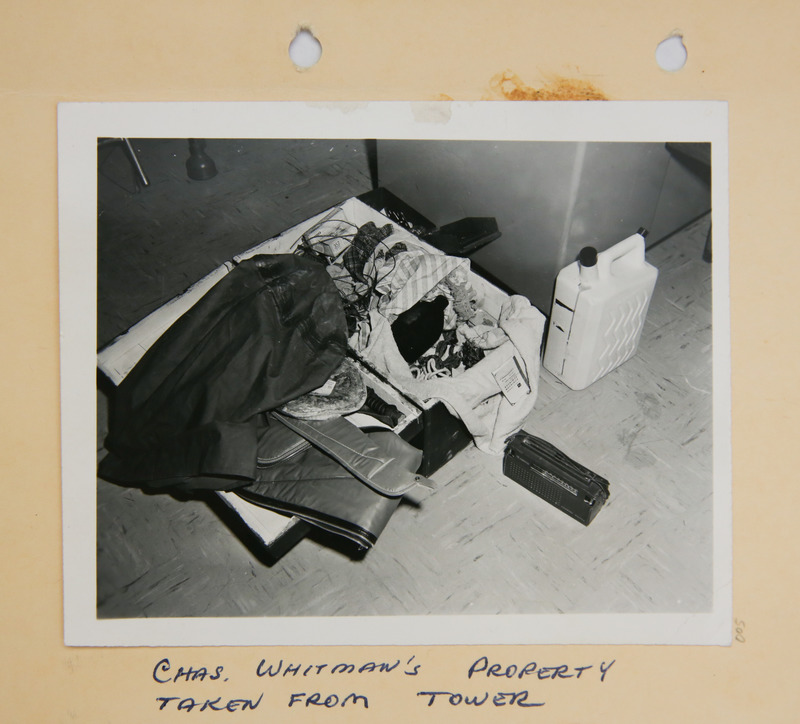 005
CHAS. WHITMAN'S PROPERTY
TAKEN FROM TOWER